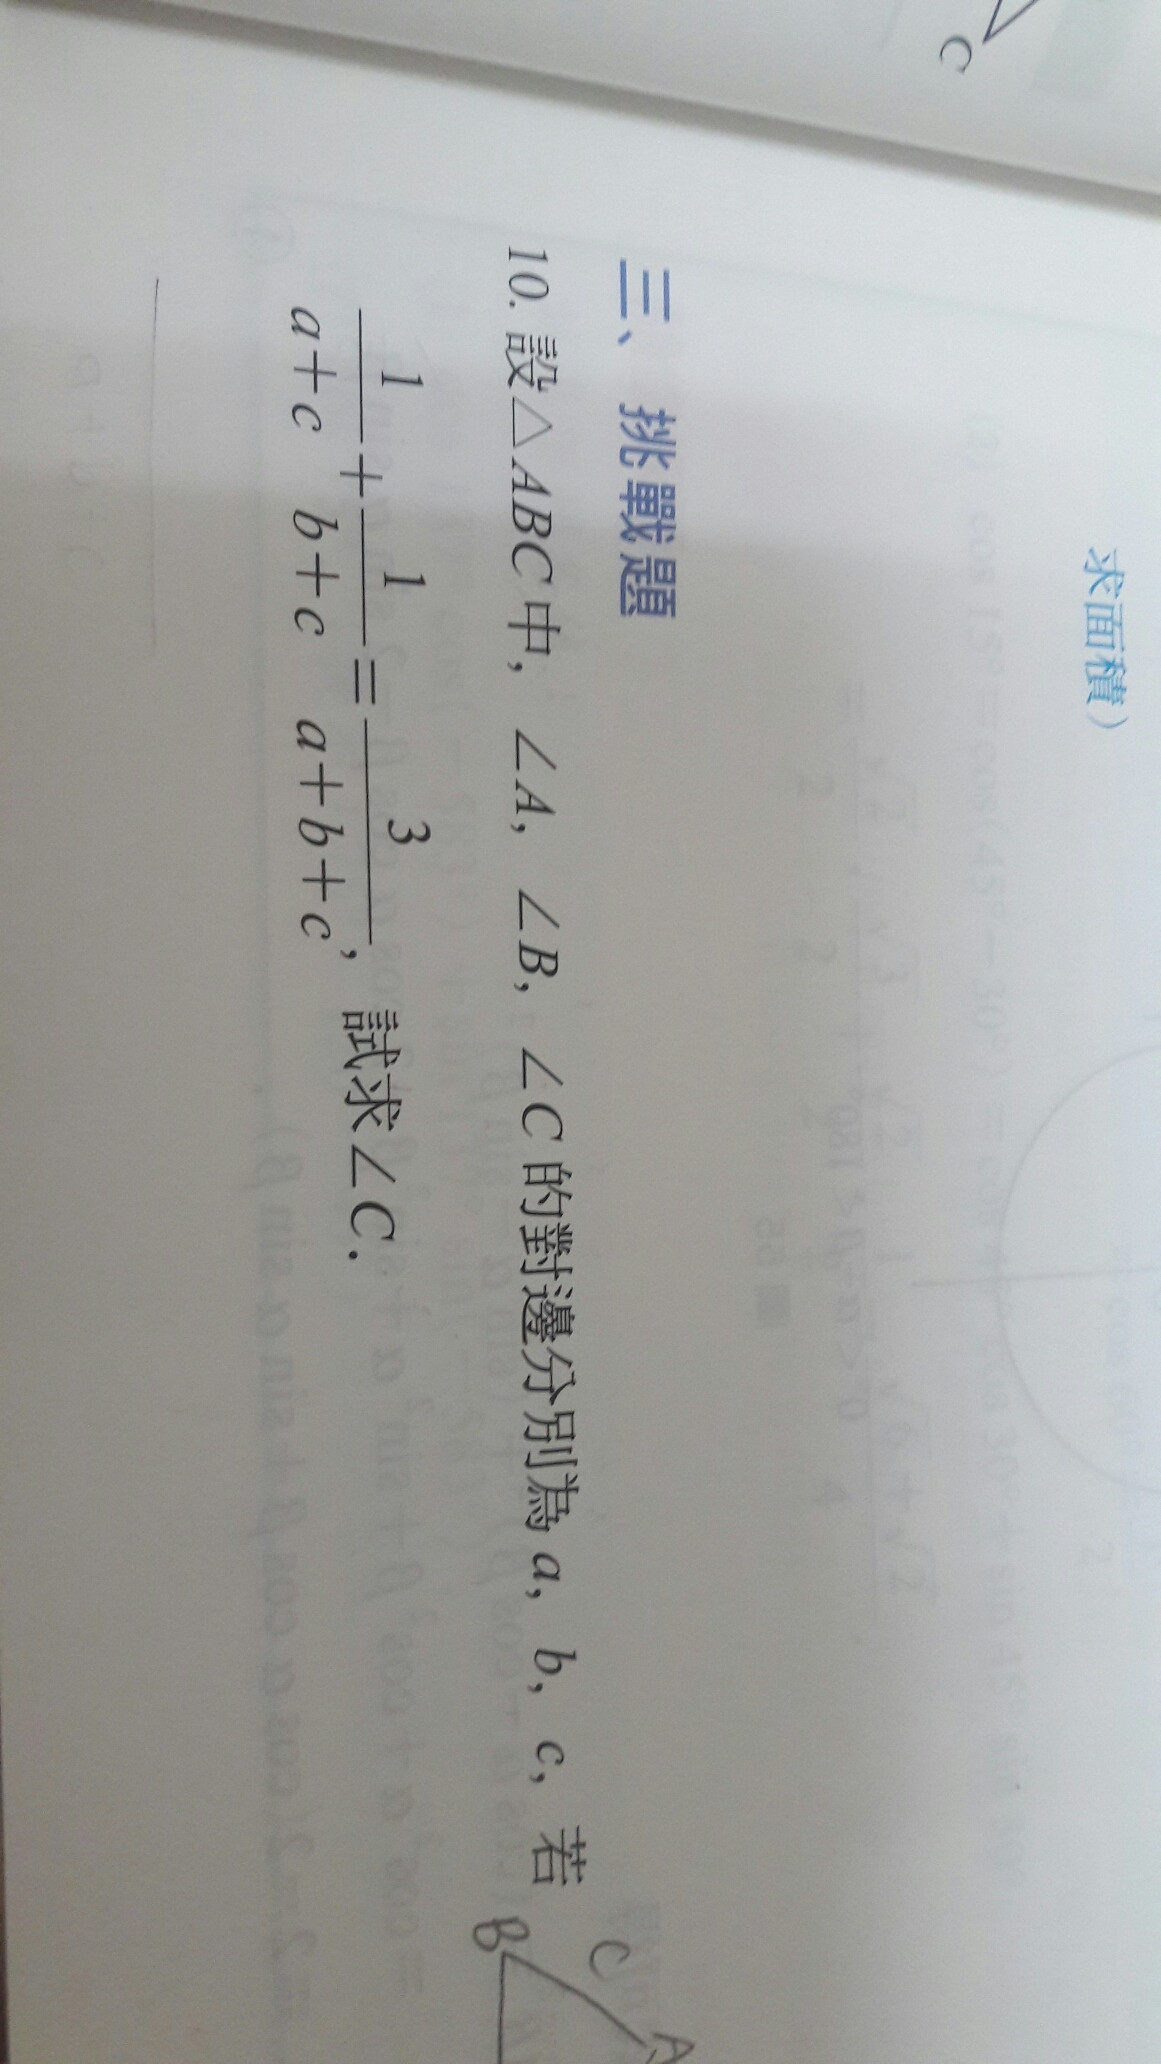 C
求面積)
三、挑戰題
10. 設△ABC中，∠A，∠B，∠C的對邊分別為a，b，c，若
1/(a+c) + 1/(b+c) = 3/(a+b+c)，試求∠C.
C
A
B